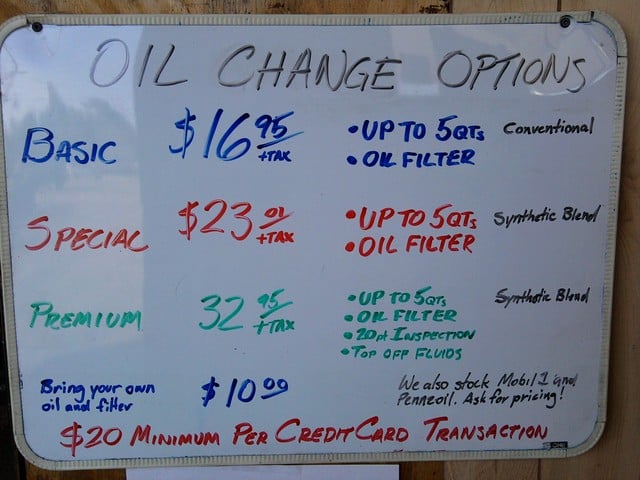 OIL CHANGE OPTIONS
BASIC $16 95 +TAX
• UP TO 5QTS Conventional
• OIL FILTER
SPECIAL $23 01 +TAX
• UP TO 5QTS Synthetic Blend
• OIL FILTER
PREMIUM 32 95 +TAX
• UP TO 5QTS Synthetic Blend
• OIL FILTER
• 20pt INSPECTION
• TOP OFF FLUIDS
Bring your own
oil and filter
$10 00
We also stock Mobil 1 and
Pennzoil. Ask for pricing!
$20 MINIMUM PER CREDIT CARD TRANSACTION